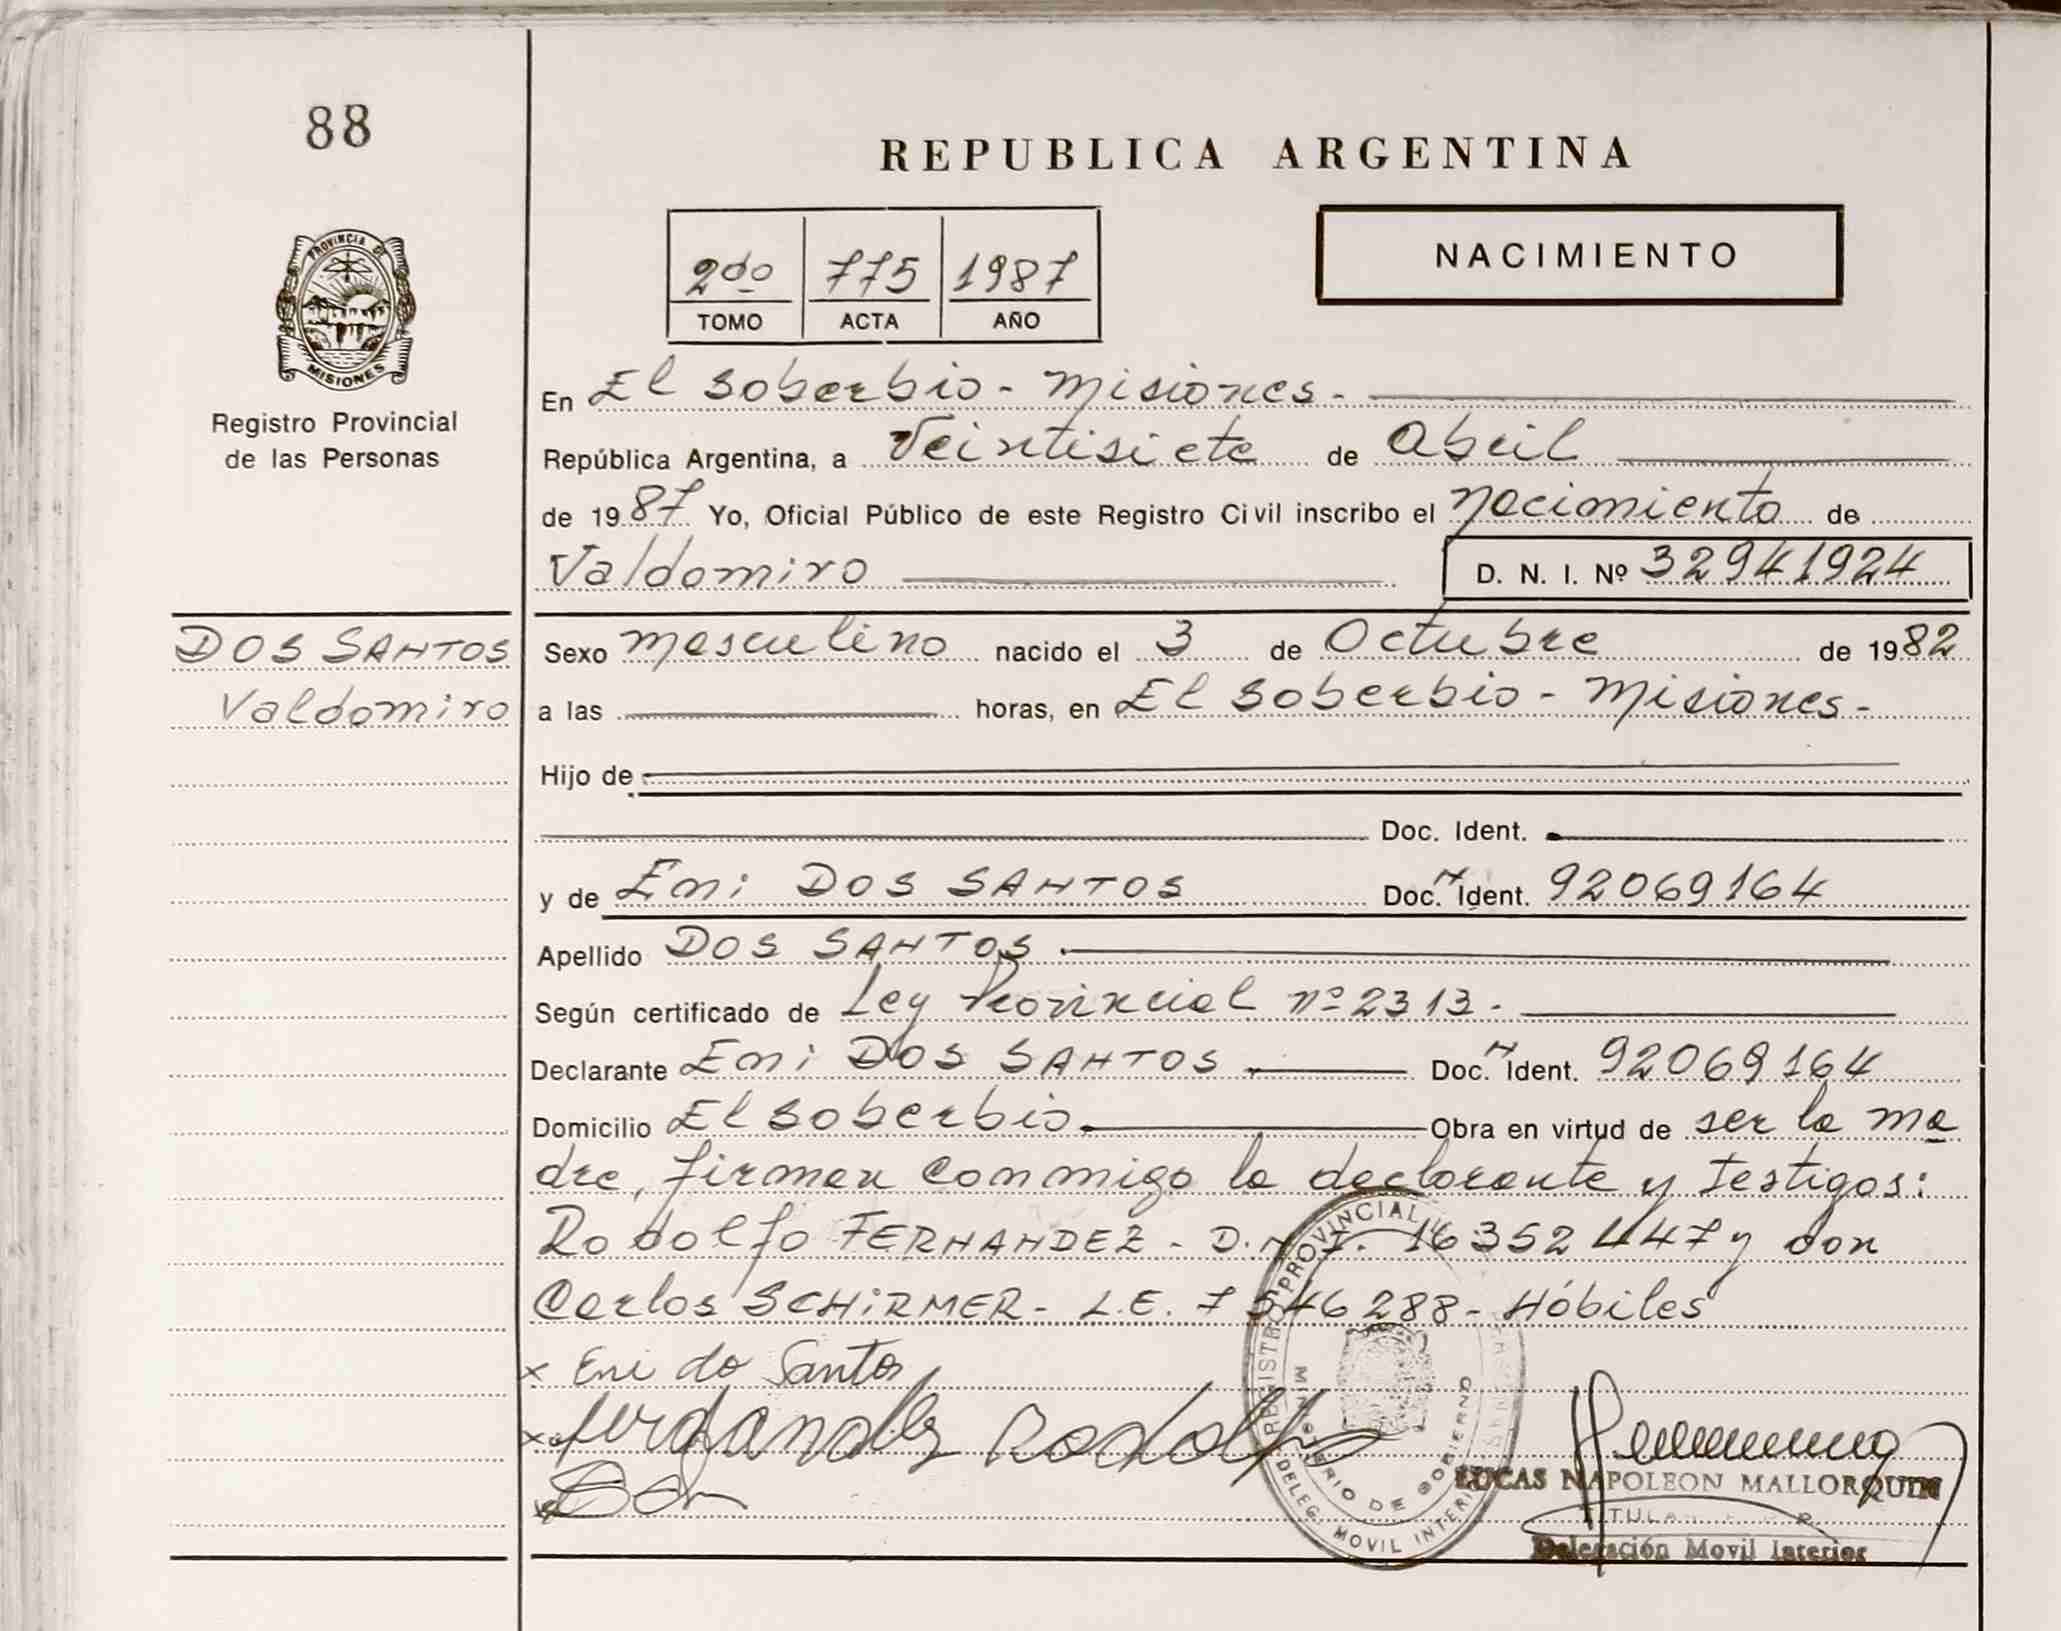 88
REPUBLICA ARGENTINA
2do 775 1987
TOMO ACTA AÑO
NACIMIENTO
PROVINCIA DE
MISIONES
Registro Provincial
de las Personas
En El Soberbio - Misiones -
República Argentina, a Veintisiete de Abril
de 1987 Yo, Oficial Público de este Registro Civil inscribo el Nacimiento de
Valdomiro D. N. I. Nº 32941924
DOS SANTOS
Valdomiro
Sexo masculino nacido el 3 de Octubre de 1982
a las horas, en El Soberbio - Misiones -
Hijo de
Doc. Ident.
y de Eni DOS SANTOS Doc. N Ident. 92069164
Apellido DOS SANTOS
Según certificado de Ley Provincial nº 2313 -
Declarante Eni DOS SANTOS Doc. N Ident. 92069164
Domicilio El Soberbio Obra en virtud de ser la ma
dre, firman conmigo la declarante y testigos:
Rodolfo FERNANDEZ - D.N.I. 16352447 y don
Carlos SCHIRMER - L.E. 7546288 - Hábiles
x Eni do Santos
x Fernandez Rodolfo
REGISTRO PROVINCIAL
MINISTERIO DE GOBIERNO
DELEG. MOVIL INTERIOR
LUCAS NAPOLEON MALLORQUIN
TITULAR
Delegación Movil Interior